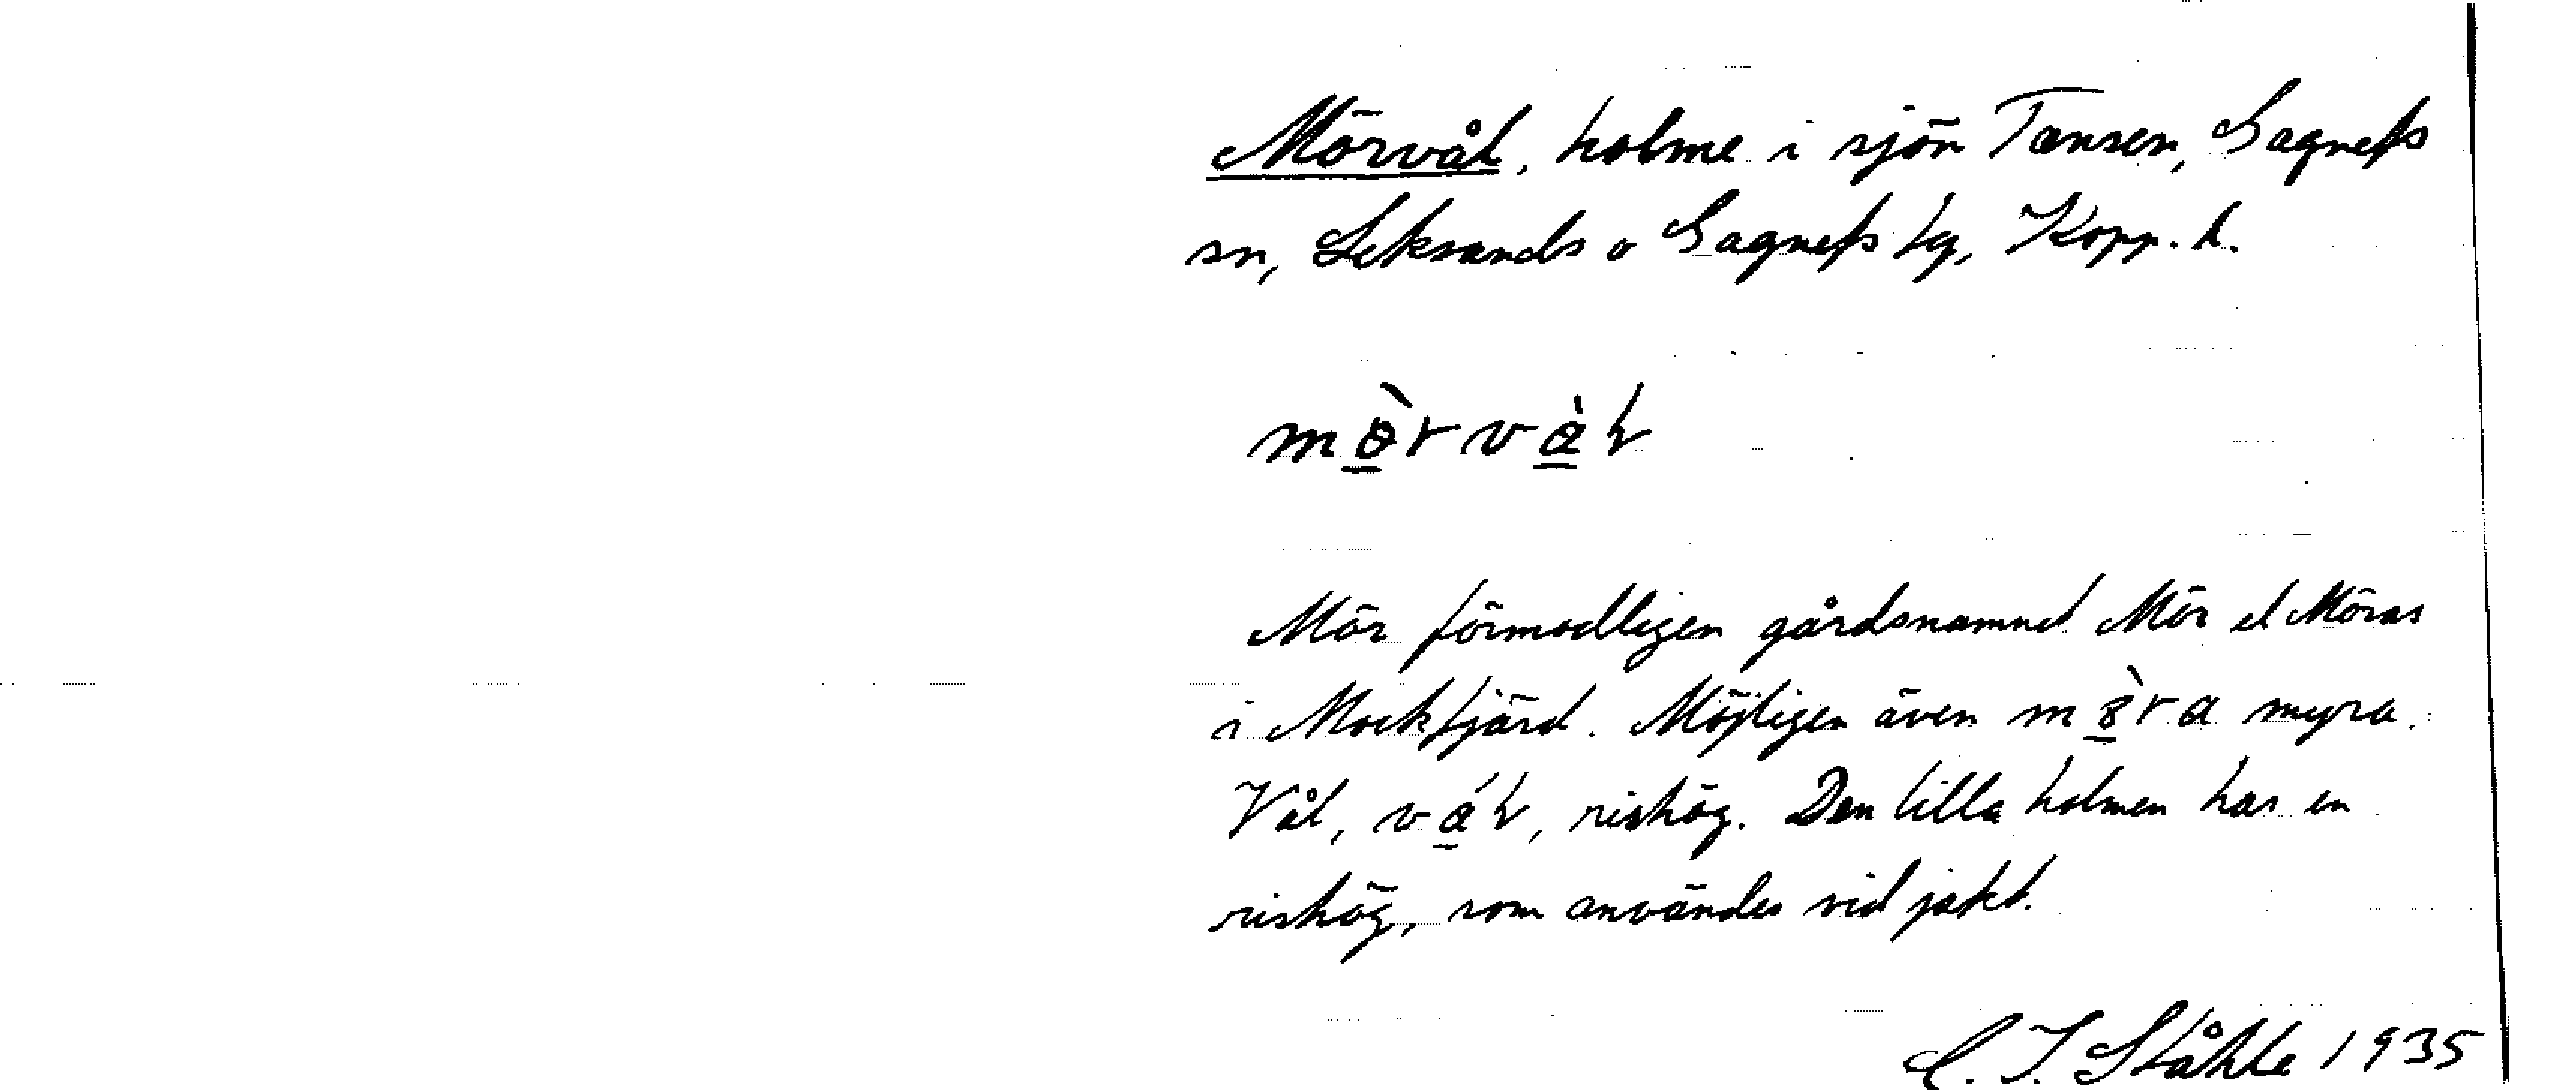 Mörvål, holme i sjön Tansen, Gagnefs
sn, Leksands o Gagnefs tg, Kopp. l.
mö̀rvàɫ
Mör förmodligen gårdsnamnet Mör el Möras
i Mockfjärd. Möjligen även mö̀ra myra.
Vål, váɫ, rishög. Den lilla holmen har en
rishög, som användes vid jakt.
C. I. Ståhle 1935